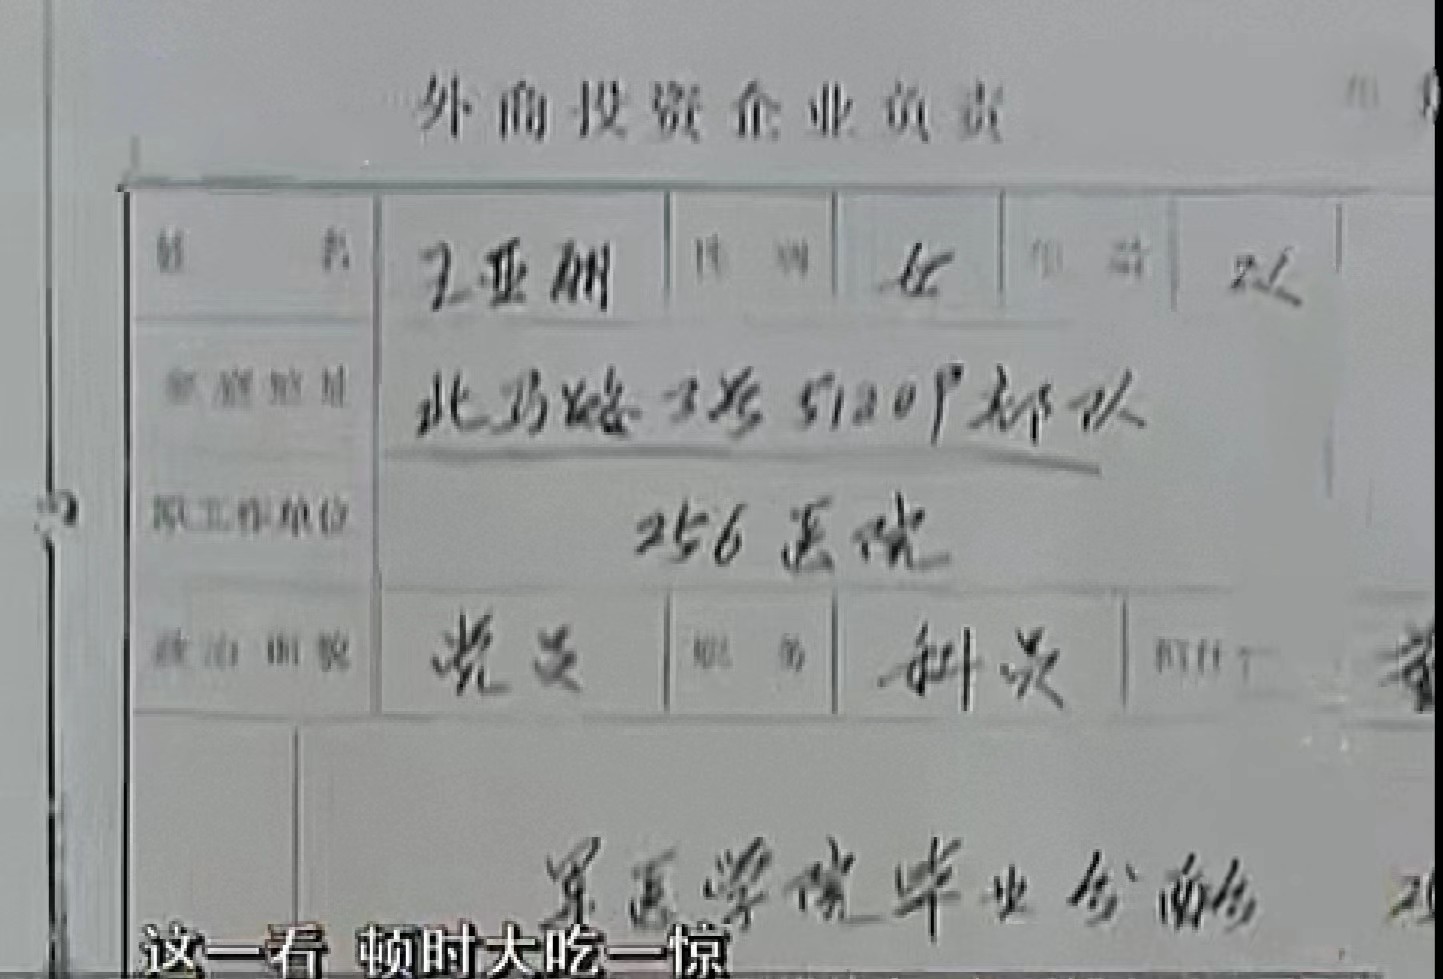 外商投资企业负责
姓 名 王亚丽 性 别 女 年 龄
家庭地址 北马路3号51209部队
原工作单位 256医院
政治面貌 党员 职 务 科员
军医学院毕业分配
这一看 顿时大吃一惊